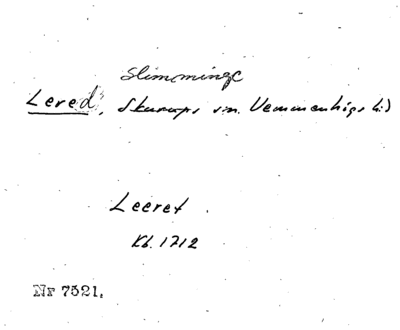 Slimminge
Lered, Skurups sn. Vemmenhögs hd
Leeret.
Kb. 1712
Nr 7521.